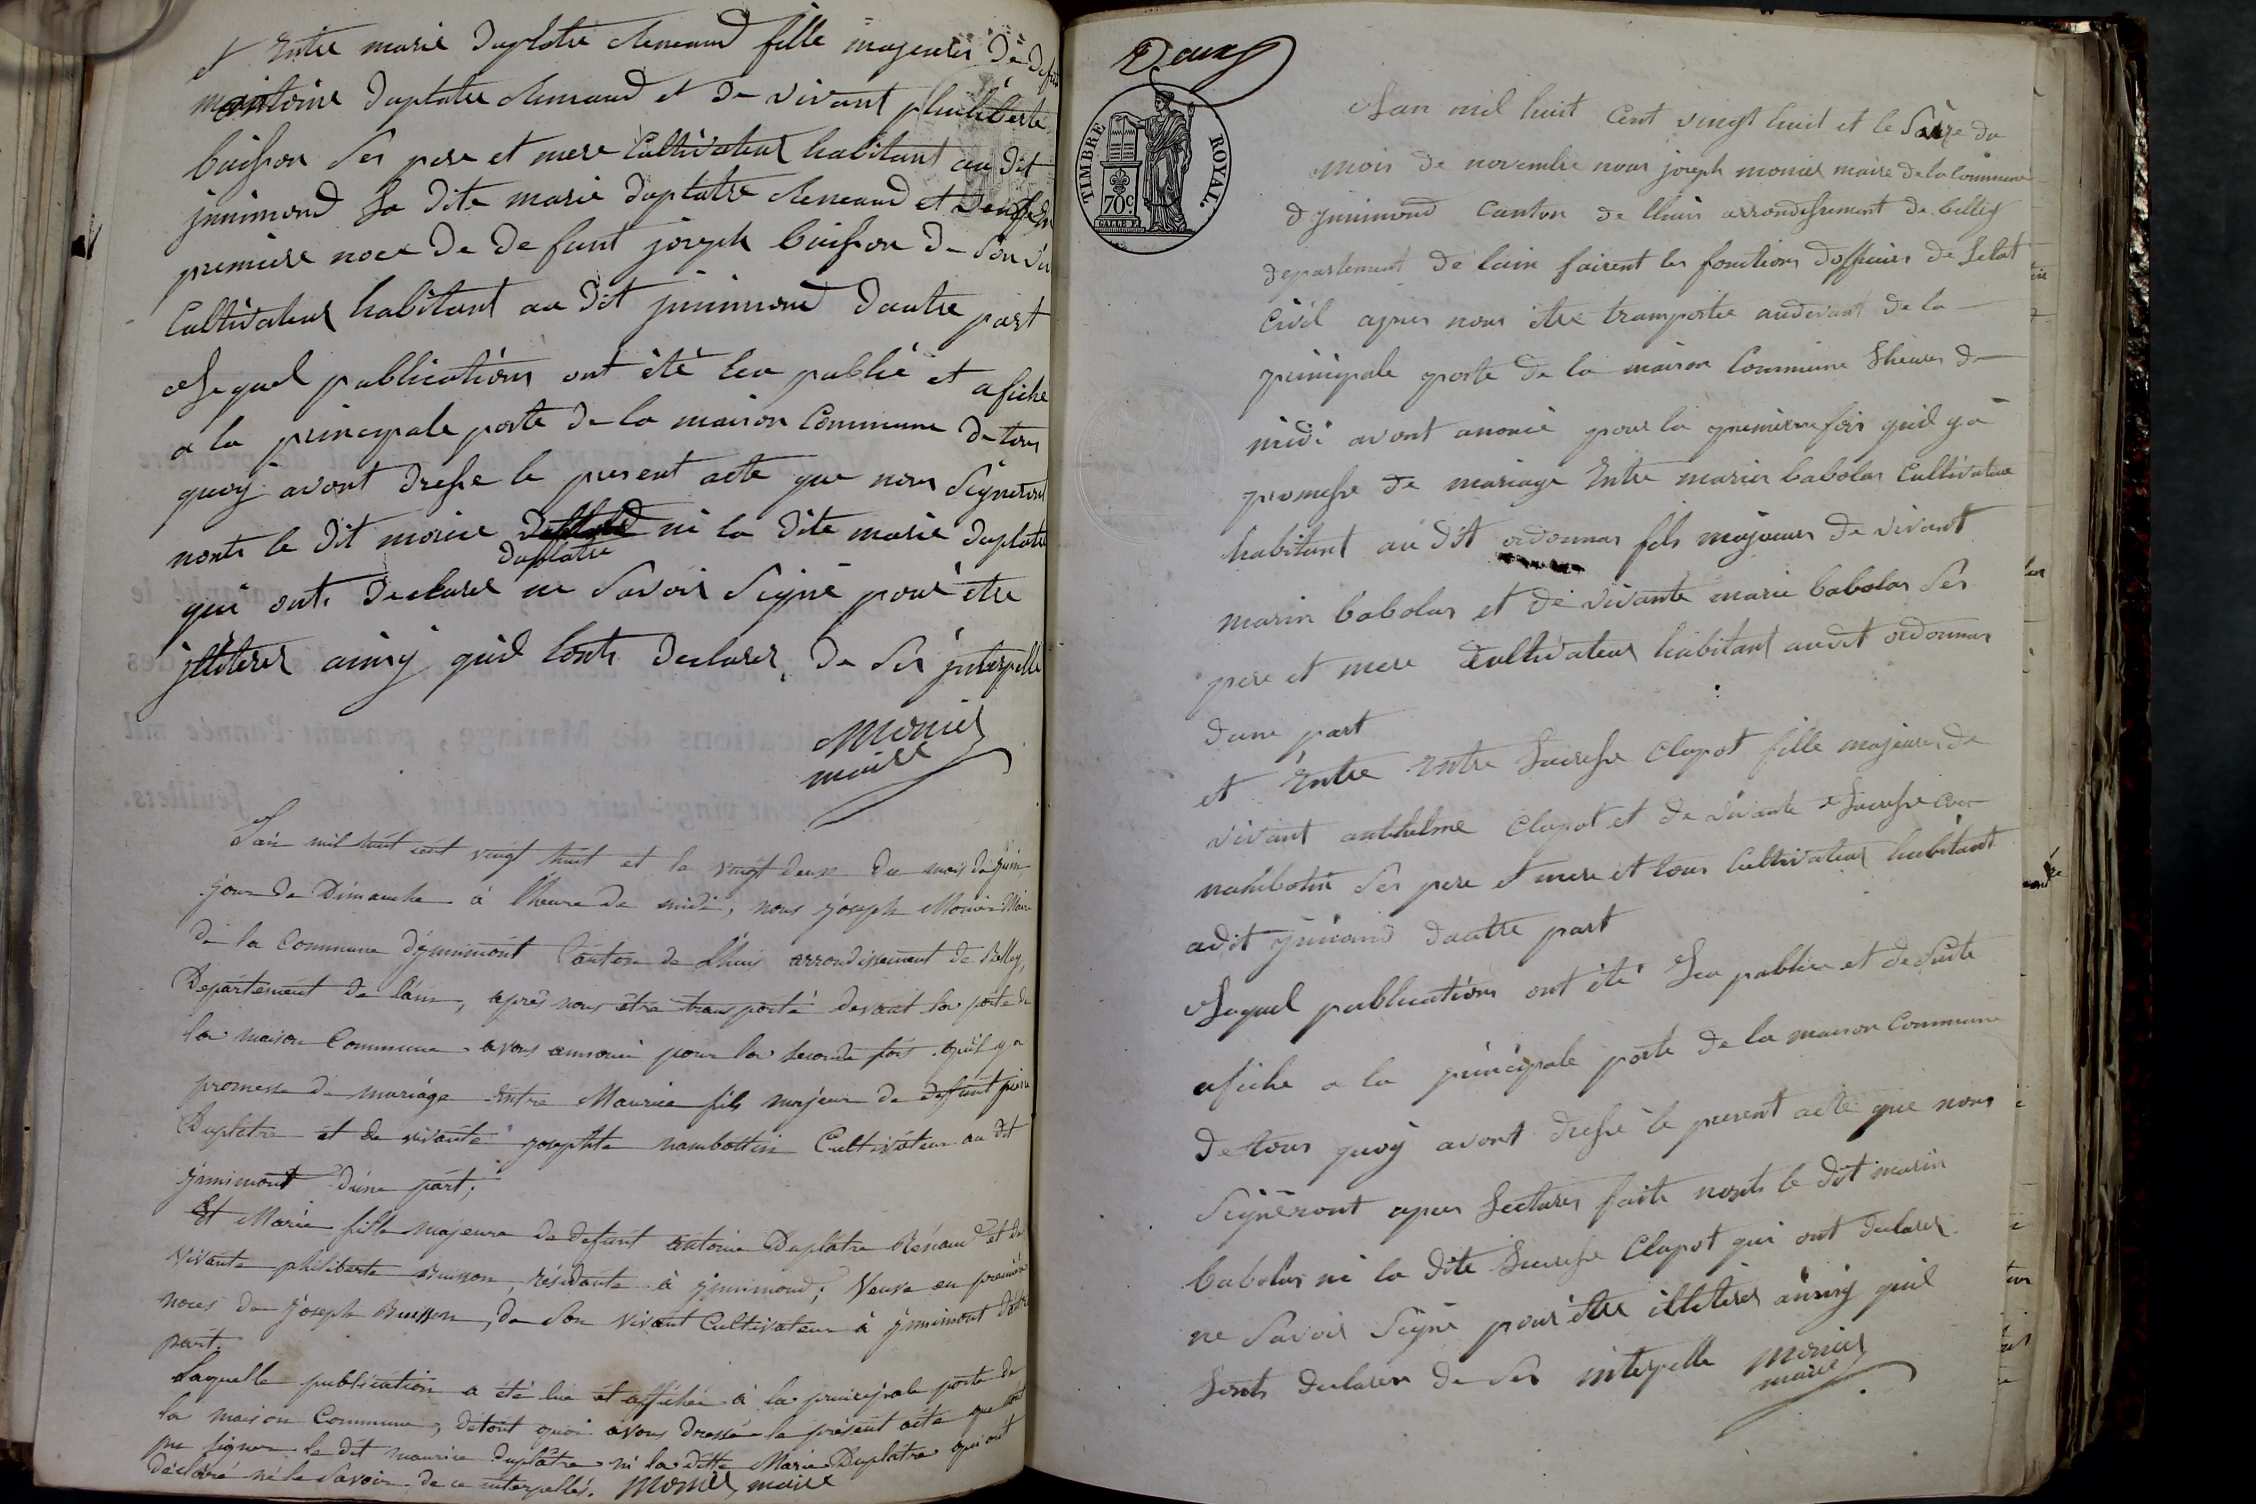 et Entre marie duplatre Reneaud fille majeures de defu
antoine duplatre Reneaud et de vivant philiberte
buisson Ses pere et mere Cultivateur habitant au dit
jnnimond La dite marie duplatre Reneaud et
premiere noce de defunt joseph buisson de Son viv
Cultivateur habitant au dit jnnimond dautre part
Le quel publications ont été leu publié et afiche
a la principale porte de la maison Commune de tous
quoy avont dresse le present acte que nous Signeront
nonts le dit morice ni la dite marie duplatre
duplatre
qui onts declarer ne Savoir Signé pour etre
jlliterer ainsy quil lonts declarer de Ser jnterpelle
Monier
maire
L'an mil huit cent vingt huit et le vingt deux du mois de juin
jour de Dimanche à l'heure de midi, nous joseph Monier Maire
de la Commune d'jnnimont Canton de Lhuis arrondissement de Belley,
Département de l'ain, après nous être transporté devant la porte de
la maison Commune avons annoncé pour la seconde fois qu'il y a
promesse de mariage entre Maurice fils majeur de défunt pierre
Duplâtre et de vivante josephte nambottin Cultivateur au dit
jnnimont d'une part;
Et Marie fille majeure de defunt antoine Duplatre Réneaud et de
vivante philiberte Buisson, résidante à jnnimond; Veuve en première
noces de joseph Buisson, de Son vivant Cultivateur à jnnimont d'autre
part.
Laquelle publication a été lue et affichée à la principale porte de
la maison Commune, detout quoi avons dressé le présent acte que n'ont
pu signer le dit maurice duplâtre ni la ditte Marie Duplâtre qui ont
déclaré ne le Savoir de ce interpellés. Monier maire
Deux
TIMBRE ROYAL.
70c
Lan mil huit Cent vingt huit et le Saize du
mois de novembre nous joseph monier maire de la Commune
d jnnimond Canton de lhuis arrondissement de belley
departement de lain fairent les fonctions dofficier de Letat
Civil apres nous être transportée audevant de la
principale porte de la maison Commune heures de
midi avont anoncé pour la premiere fois quil y a
promesse de mariage Entre marin babolas Cultivateur
habitant au dit ordonnas fils majeure de vivant
marin babolas et de vivante marie babolas Ses
pere et mere Cultivateur habitant audit ordonnas
dune part
et Entre Entre Clapot fille majeures de
vivant anthelme Clapot et de vivante
nambotin Ses pere et mere et tous Cultivateur habitant
adit dautre part
Laquel publications ont été Leu publier et de Suite
afiche a la principale porte de la maison Commune
de tous quoy avont dressé le present acte que nous
Signeront apres Lectures faite nonts le dit marin
babolas ni la dite Clapot qui ont declarer
ne Savoir Signé pour être illiterer ainsy quil
Lonts declarer de Ser interpelle Monier
maire